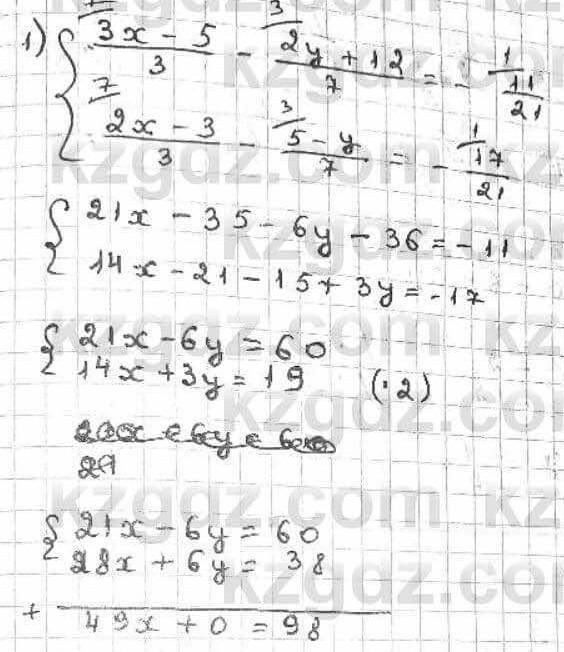 1) { (3x - 5)/3 - (2y + 12)/7 = - 11/21
7 3 1
(2x - 3)/3 - (5 - y)/7 = - 17/21
{ 21x - 35 - 6y - 36 = - 11
14x - 21 - 15 + 3y = - 17
{ 21x - 6y = 60
14x + 3y = 19 (· 2)
{ 21x - 6y = 60
28x + 6y = 38
+
49x + 0 = 98
kzgdz.com